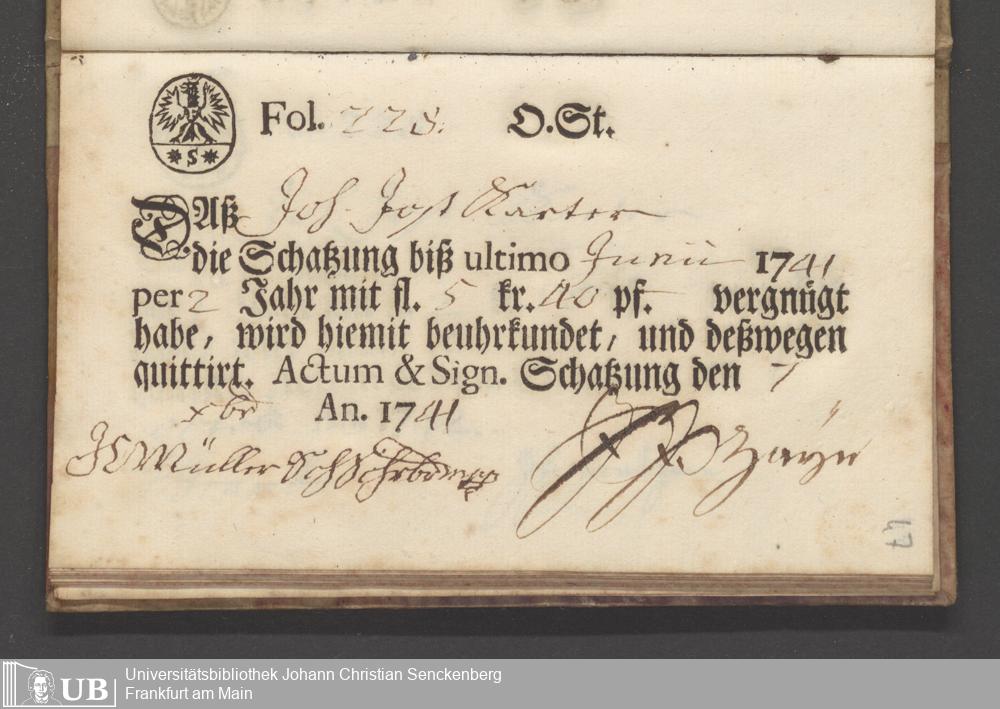 Fol. 228. O.St.
S
Daß Joh. Jost Karter
die Schatzung biß ultimo Junii 1741
per 2 Jahr mit fl. 5 kr. 40 pf. vergnügt
habe, wird hiemit beuhrkundet, und deßwegen
quittirt. Actum & Sign. Schatzung den 7
xbr An. 1741
Müller
47
Universitätsbibliothek Johann Christian Senckenberg
UB Frankfurt am Main